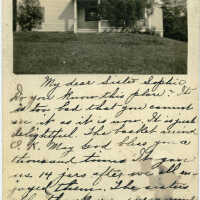 My dear Sister Sophie
Do you know this place? It
is too bad that you cannot
see it as it is now. It is just
delightful. The basket found
O.K. May God bless you a
thousand times. It gave
us 14 jars after we all en-
joyed them. The sisters